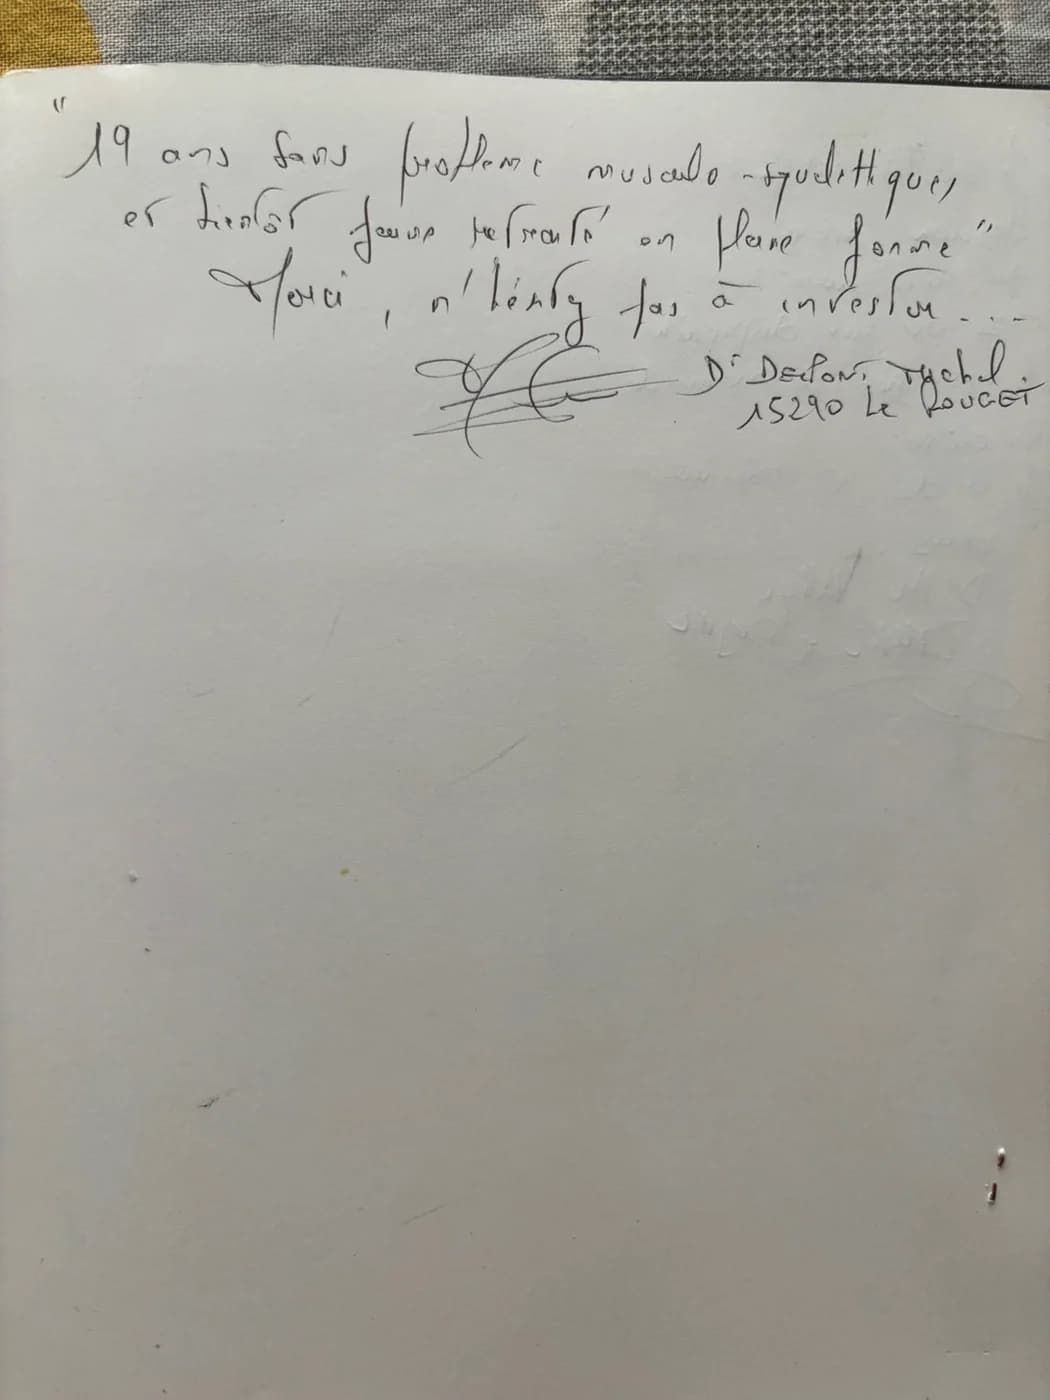 "19 ans sans problème musculo-squelettiques,
et bientôt jeune retraité en pleine forme"
Merci, n'hésitez pas à investir....
Dr
15290 Le ROUGET